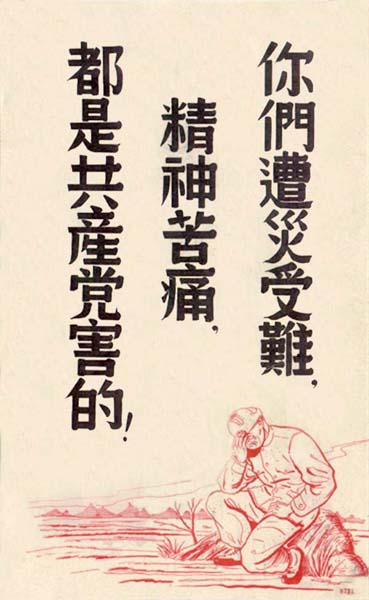 你們遭災受難，
精神苦痛，
都是共産党害的！